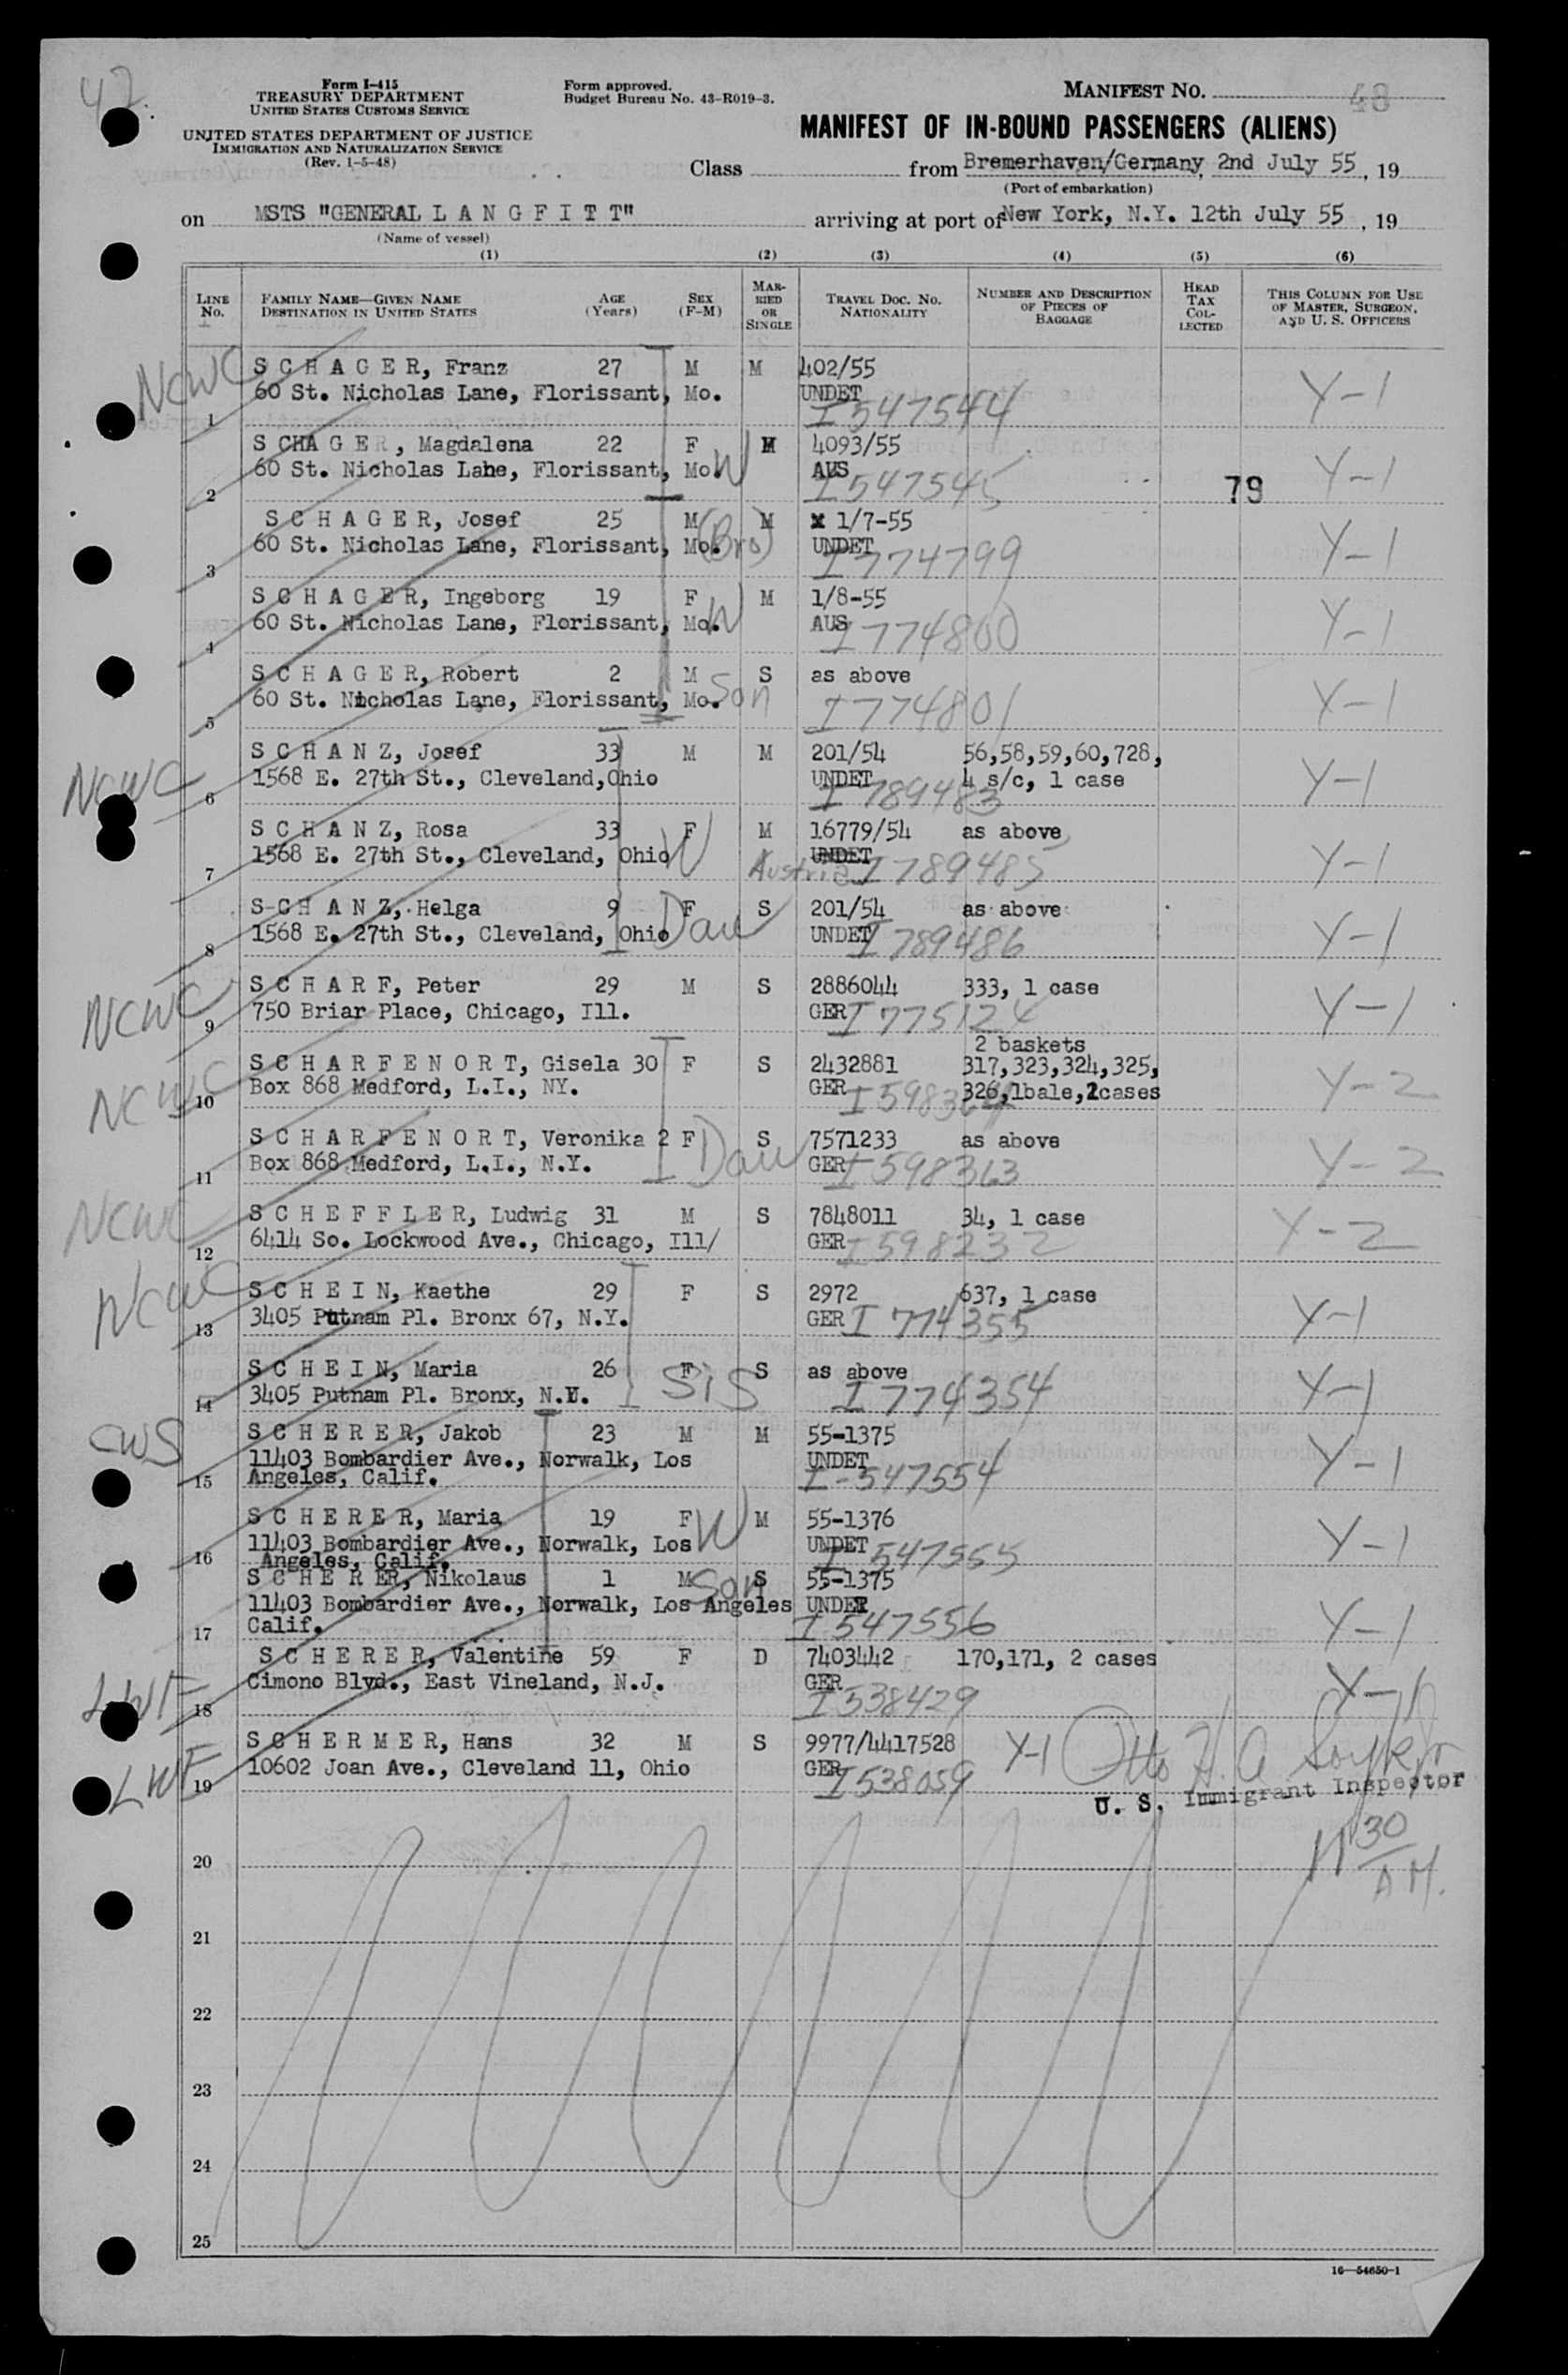 47
Form I-415
TREASURY DEPARTMENT
UNITED STATES CUSTOMS SERVICE
UNITED STATES DEPARTMENT OF JUSTICE
IMMIGRATION AND NATURALIZATION SERVICE
(Rev. 1-5-48)
Form approved.
Budget Bureau No. 43-R019-3.
MANIFEST NO. 48
MANIFEST OF IN-BOUND PASSENGERS (ALIENS)
Class from Bremerhaven/Germany, 2nd July 55, 19
(Port of embarkation)
on MSTS "GENERAL L A N G F I T T" arriving at port of New York, N.Y. 12th July 55, 19
(Name of vessel)
(1) (2) (3) (4) (5) (6)
LINE No. FAMILY NAME—GIVEN NAME DESTINATION IN UNITED STATES AGE (Years) SEX (F-M) MARRIED OR SINGLE TRAVEL DOC. NO. NATIONALITY NUMBER AND DESCRIPTION OF PIECES OF BAGGAGE HEAD TAX COLLECTED THIS COLUMN FOR USE OF MASTER, SURGEON, AND U. S. OFFICERS
NCWC S C H A G E R, Franz 27 M M 402/55
1 60 St. Nicholas Lane, Florissant, Mo. UNDET I 547544 Y-1
S CHA G E R, Magdalena 22 F M 4093/55
2 60 St. Nicholas Lane, Florissant, Mo. W AUS I 547545 79 Y-1
S C H A G E R, Josef 25 M (Bro) M x 1/7-55
3 60 St. Nicholas Lane, Florissant, Mo. UNDET I 774799 Y-1
S C H A G E R, Ingeborg 19 F M 1/8-55
4 60 St. Nicholas Lane, Florissant, Mo. W AUS I 774800 Y-1
S C H A G E R, Robert 2 M S as above
5 60 St. Nicholas Lane, Florissant, Mo. Son I 774801 Y-1
S C H A N Z, Josef 33 M M 201/54 56,58,59,60,728,
NCWC 6 1568 E. 27th St., Cleveland,Ohio UNDET 4 s/c, 1 case I 789483 Y-1
S C H A N Z, Rosa 33 F M 16779/54 as above
7 1568 E. 27th St., Cleveland, Ohio W UNDET Austria I 789485 Y-1
S C H A N Z, Helga 9 F S 201/54 as above
8 1568 E. 27th St., Cleveland, Ohio Dau UNDET I 789486 Y-1
S C H A R F, Peter 29 M S 2886044 333, 1 case
NCWC 9 750 Briar Place, Chicago, Ill. GER I 775124 Y-1
2 baskets
S C H A R F E N O R T, Gisela 30 F S 2432881 317,323,324,325,
NCWC 10 Box 868 Medford, L.I., NY. GER I 598364 326,1bale,2cases Y-2
S C H A R F E N O R T, Veronika 2 F S 7571233 as above
11 Box 868 Medford, L.I., N.Y. Dau GER I 598363 Y-2
S C H E F F L E R, Ludwig 31 M S 7848011 34, 1 case
NCWC 12 6414 So. Lockwood Ave., Chicago, Ill/ GER I 598232 Y-2
S C H E I N, Kaethe 29 F S 2972 637, 1 case
NCWC 13 3405 Putnam Pl. Bronx 67, N.Y. GER I 774355 Y-1
S C H E I N, Maria 26 F S as above
14 3405 Putnam Pl. Bronx, N.Y. Sis I 774354 Y-1
CWS S C H E R E R, Jakob 23 M M 55-1375
11403 Bombardier Ave., Norwalk, Los UNDET
15 Angeles, Calif. I-547554 Y-1
S C H E R E R, Maria 19 F W M 55-1376
16 11403 Bombardier Ave., Norwalk, Los UNDET I 547555 Y-1
Angeles, Calif.
S C H E R ER, Nikolaus 1 M Son S 55-1375
11403 Bombardier Ave., Norwalk, Los Angeles UNDET
17 Calif. I 547556 Y-1
S C H E R E R, Valentine 59 F D 7403442 170,171, 2 cases
LWF 18 Cimono Blvd., East Vineland, N.J. GER I 538429 Y-1
S C H E R M E R, Hans 32 M S 9977/4417528 Y-1
LWF 19 10602 Joan Ave., Cleveland 11, Ohio GER I 538059
Otto H. A.
U. S. Immigrant Inspector
11 30 A M.
20
21
22
23
24
25
16—54650-1